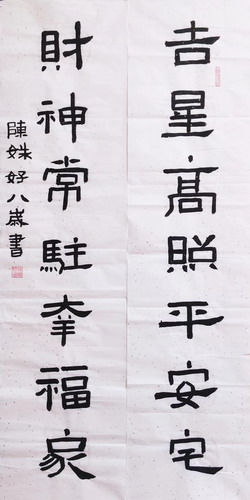 吉星高照平安宅
財神常駐幸福家
陳姝好八歲書